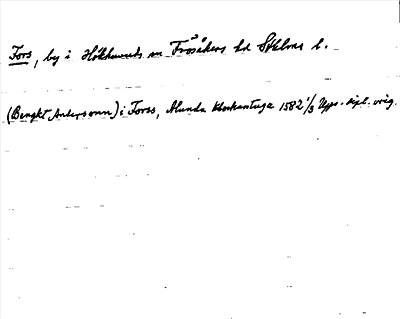 Fors, by i Hökhuvuds sn Frösåkers hd Sthlms l.
(Bengkt Andersonn) i Forss, Alunda klockartuga 1582 1/3 Upps. dipl. orig.